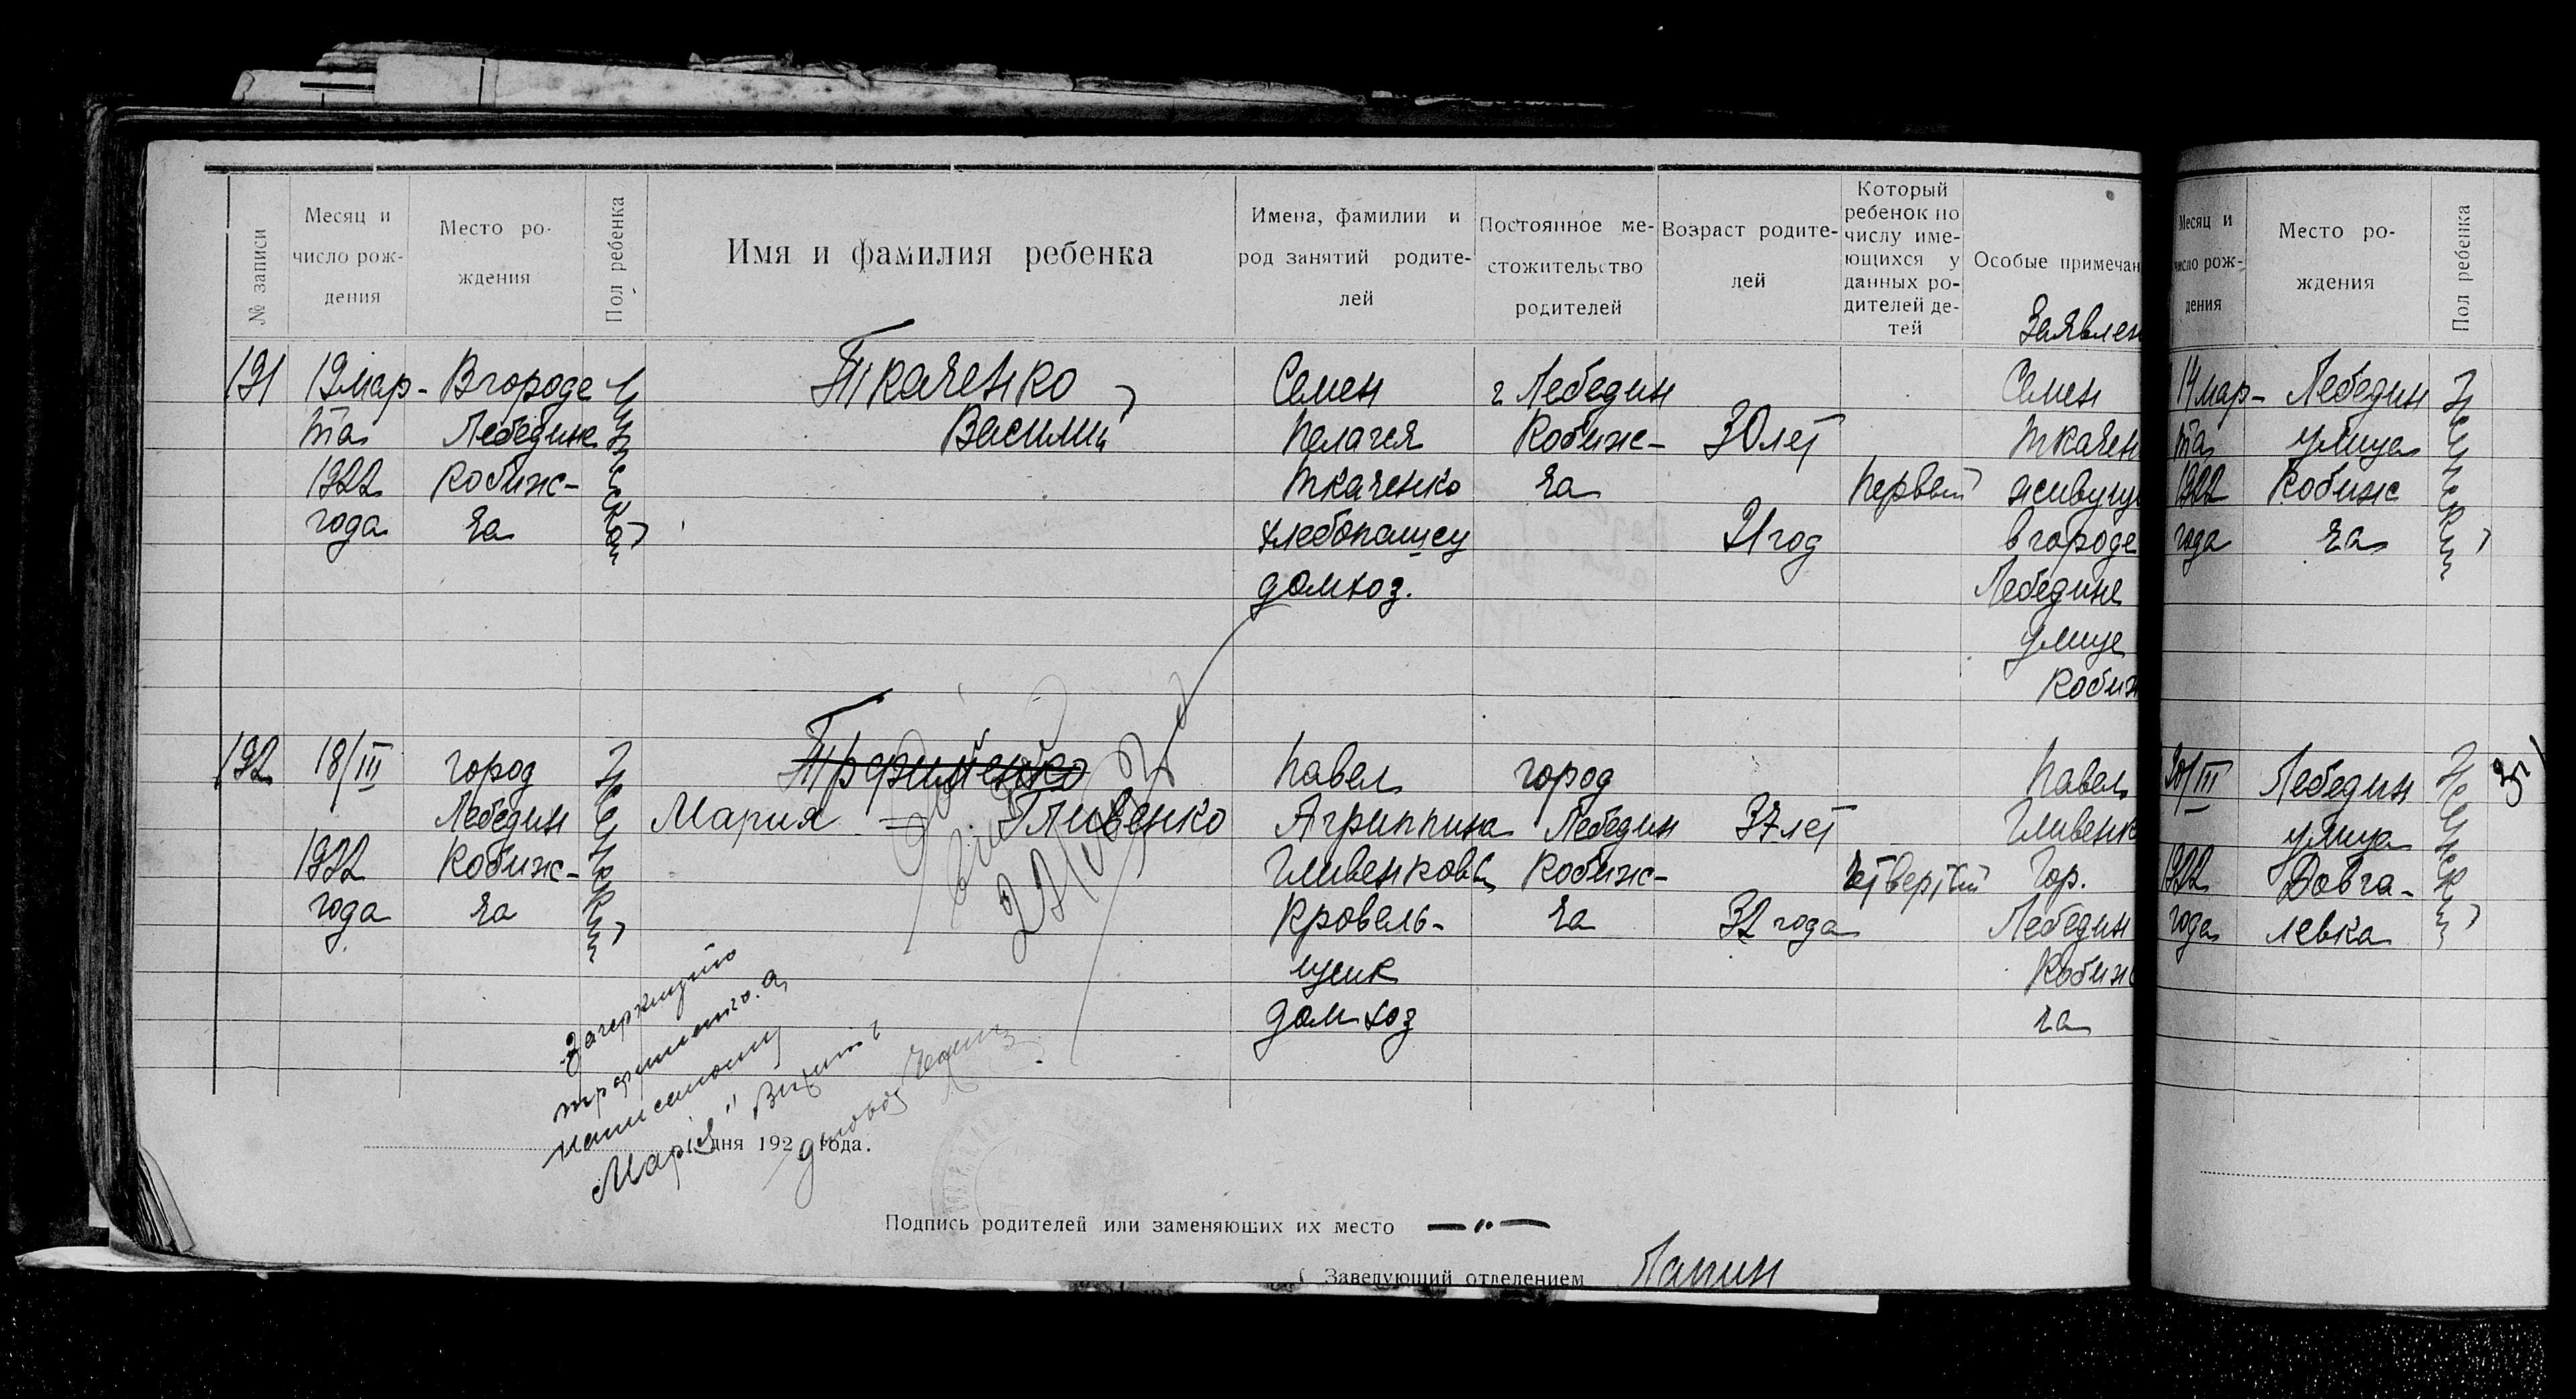 № записи
Месяц и
число рож-
дения
Место ро-
ждения
Пол ребенка
Имя и фамилия ребенка
Имена, фамилии и
род занятий родите-
лей
Постоянное ме-
стожительство
родителей
Возраст родите-
лей
Который
ребенок по
числу име-
ющихся у
данных ро-
дителей де-
тей
Особые примечан
Заявлен
191
19 мар-
та
1922
года
В городе
Лебедине
Кобиж-
ча
Мужской
Ткаченко
Василий
Семен
Пелагея
Ткаченко
хлебопашец
домхоз.
г Лебедин
Кобиж-
ча
30 лет
21 год
первый
Семен
Ткачен
живущ
в городе
Лебедине
улице
Кобиж
192
18/III
1922
года
город
Лебедин
Кобиж-
ча
Женский
Трофименко
Мария Гливенко
Павел
Агриппина
Гливенковы
Кровель-
щик
домхоз
город
Лебедин
Кобиж-
ча
37 лет
32 года
четвертый
Павел
Гливенк
Гор.
Лебедин
Кобиж
ча
Марія
дня 192 года.
Подпись родителей или заменяющих их место — " —
Заведующий отделением Лапин
Месяц и
число рож-
дения
Место ро-
ждения
Пол ребенка
14 мар-
та
1922
года
Лебедин
улица
Кобиж
ча
Женский
20/III
1922
года
Лебедин
улица
Довга-
левка
Женский